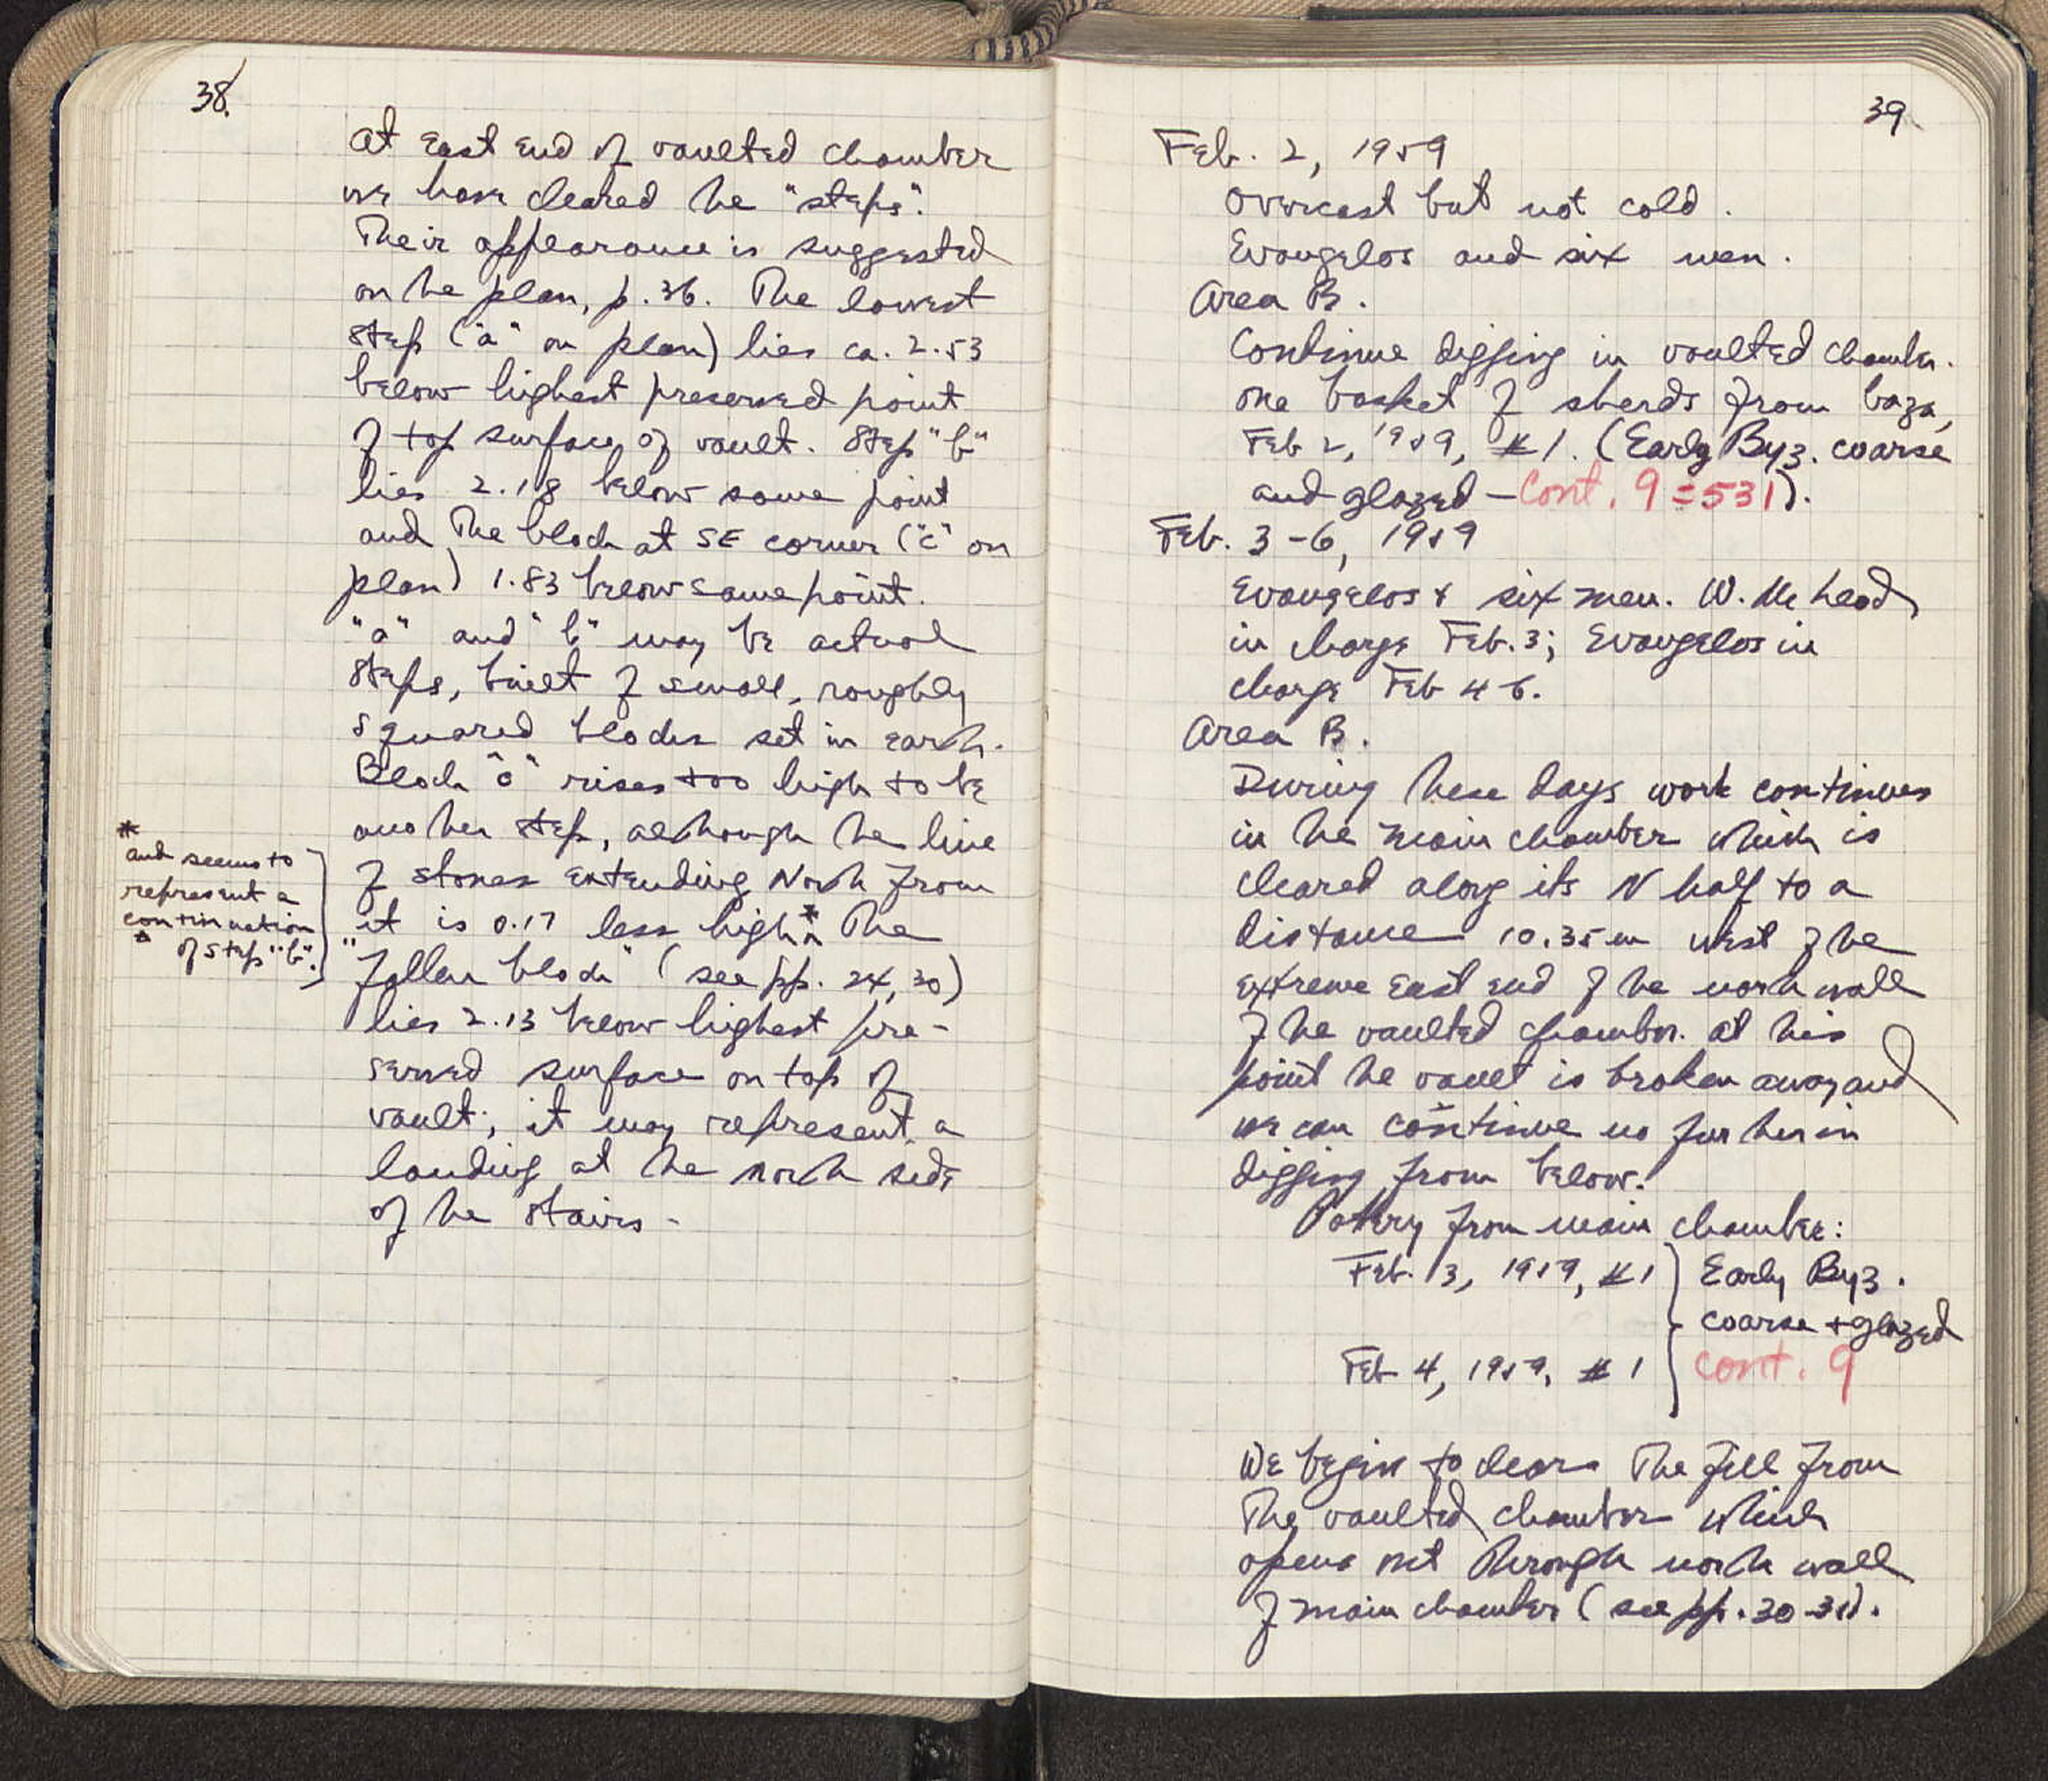 38.
At East End of vaulted chamber
we have cleared the "steps".
Their appearance is suggested
on the plan, p. 36. The lowest
step ("a" on plan) lies ca. 2.53
below highest preserved point
of top surface of vault. Step "b"
lies 2.18 below same point
and the block at SE corner ("c" on
plan) 1.83 below same point.
"a" and "b" may be actual
steps, built of small, roughly
squared blocks set in earth.
Block "c" rises too high to be
another step, although the line
of stones extending North from
it is 0.17 less high* The
"fallen block" (see pp. 24, 30)
lies 2.13 below highest pre-
served surface on top of
vault; it may represent a
landing at the north side
of the stairs.
*
and seems to
represent a
continuation
of step "b".
39.
Feb. 2, 1959
Overcast but not cold.
Evangelos and six men.
Area B.
Continue digging in vaulted chamber.
One basket of sherds from baza,
Feb 2, 1959, #1. (Early Byz. coarse
and glazed - Cont. 9 = 531).
Feb. 3-6, 1959
Evangelos + six men. W. McLeod
in charge Feb. 3; Evangelos in
charge Feb 4-6.
Area B.
During these days work continues
in the main chamber which is
cleared along its N half to a
distance 10.35 m west of the
extreme east end of the north wall
of the vaulted chamber. At this
point the vault is broken away and
we can continue no further in
digging from below.
Pottery from main chamber:
Feb. 3, 1959, #1 } Early Byz.
coarse + glazed
Feb 4, 1959, #1 cont. 9
We begin to clear the fill from
the vaulted chamber which
opens out through north wall
of main chamber (see pp. 30-31).